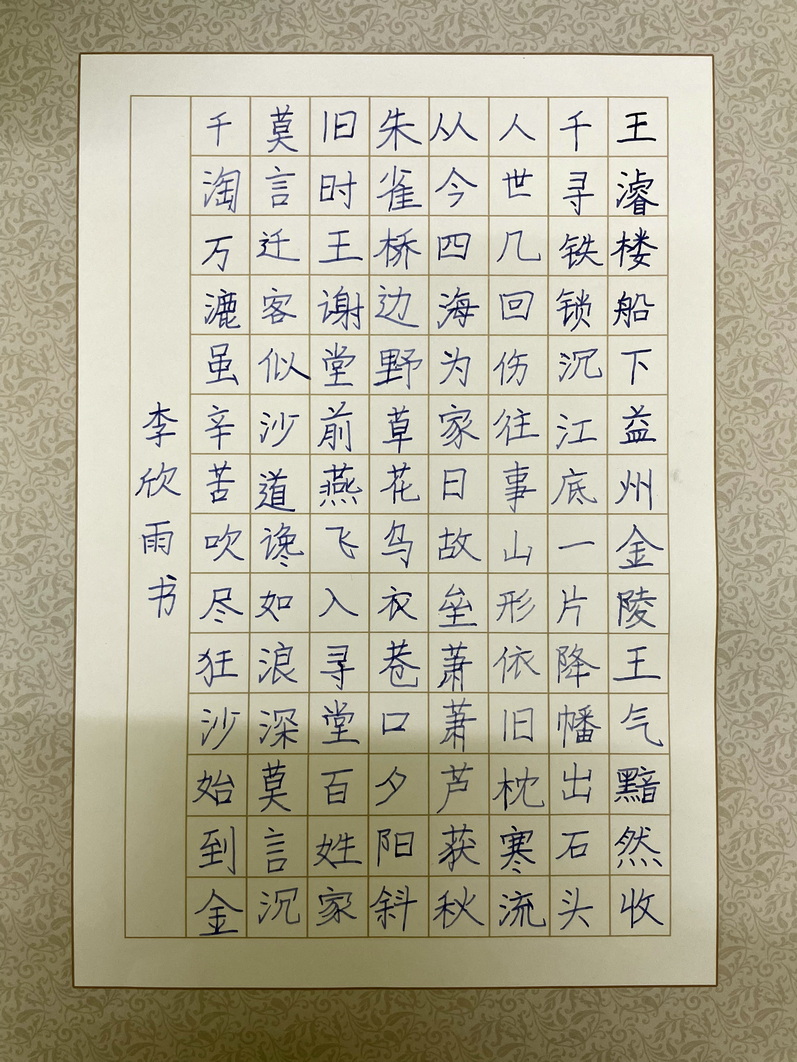 王濬楼船下益州金陵王气黯然收
千寻铁锁沉江底一片降幡出石头
人世几回伤往事山形依旧枕寒流
从今四海为家日故垒萧萧芦获秋
朱雀桥边野草花乌衣巷口夕阳斜
旧时王谢堂前燕飞入寻堂百姓家
莫言迁客似沙道谗如浪深莫言沉
千淘万漉虽辛苦吹尽狂沙始到金
李欣雨书